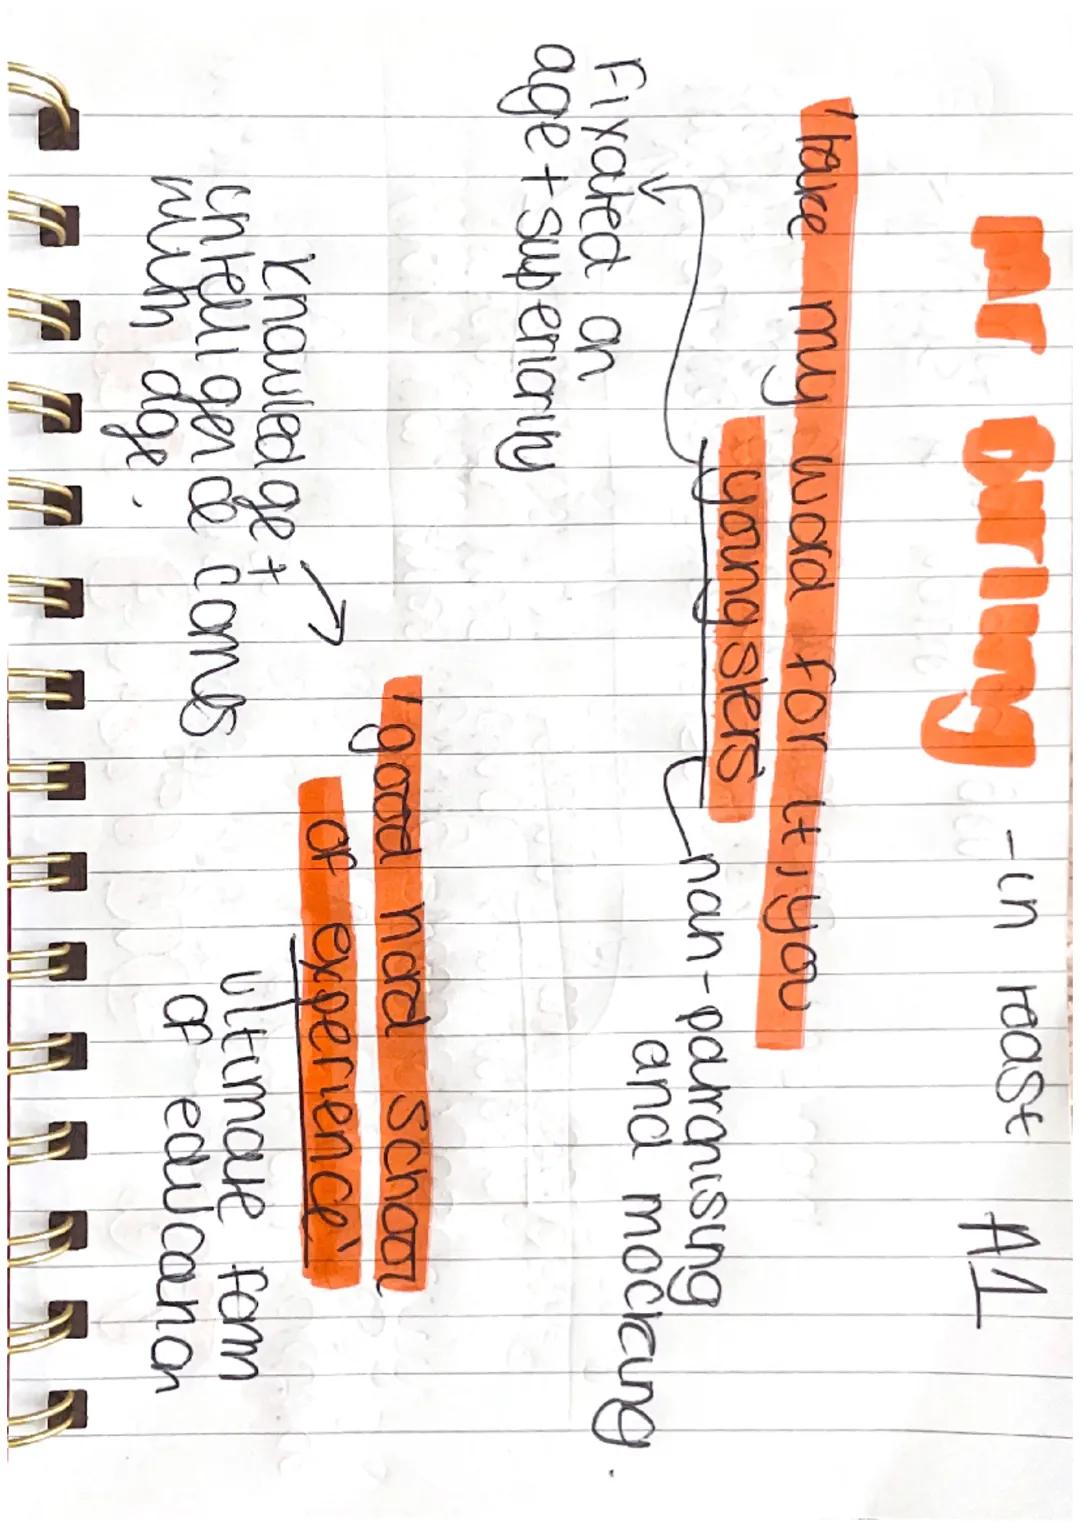 mr Birling - in toast A1
'take my word for it, you
youngsters'
non-patronising
and mocking.
Fixated on
age + superiority
'good hard school
of experience'
Knowledge +
intelligence comes
with age.
ultimate form
of education